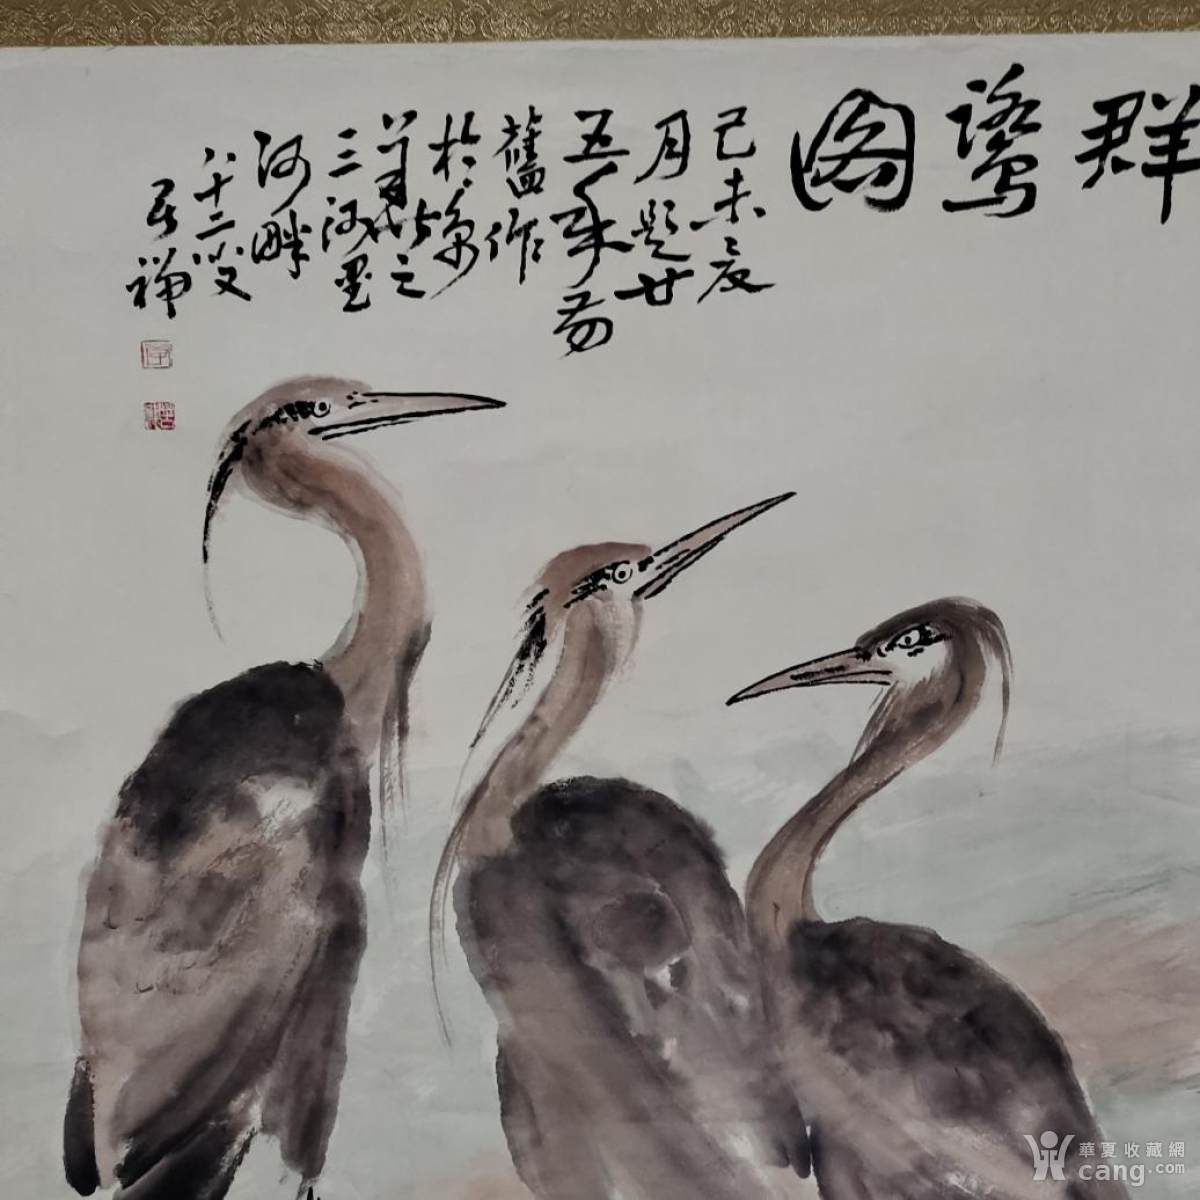 群鹭图
己未辰
月题廿
五年前
舊作
於京
之
三河里
河畔
八十二叟
苦禅
華夏收藏網
cang.com